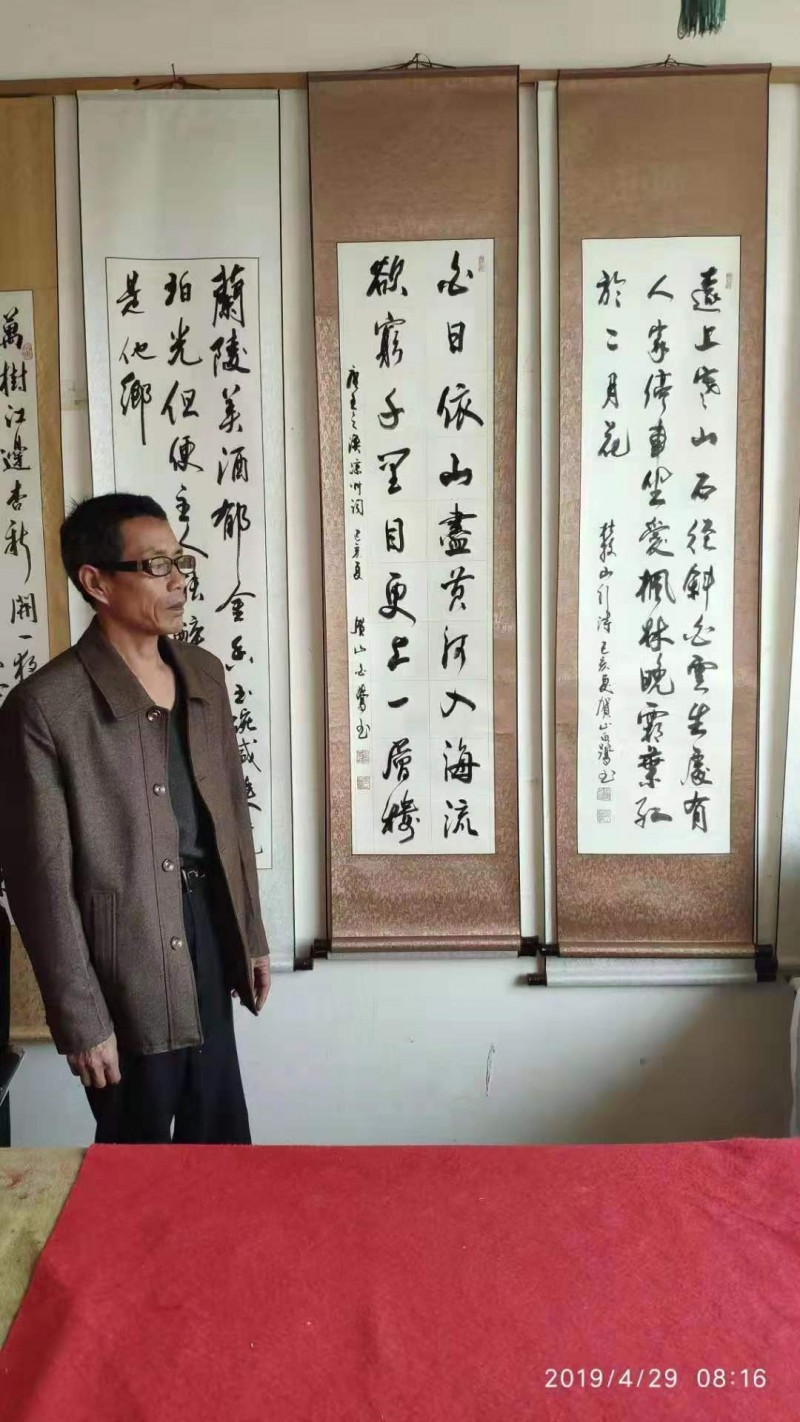 遠上寒山石徑斜白雲生處有
人家停車坐愛楓林晚霜葉紅
於二月花
杜牧山行詩 己亥夏賀山白鷺书
白日依山盡黄河入海流
欲窮千里目更上一層樓
唐王之渙涼州词 己亥夏 賀山白鷺书
蘭陵美酒郁金香玉碗盛
珀光但使主人能醉
是他鄉
萬樹江邊杏新開一夜
2019/4/29 08:16